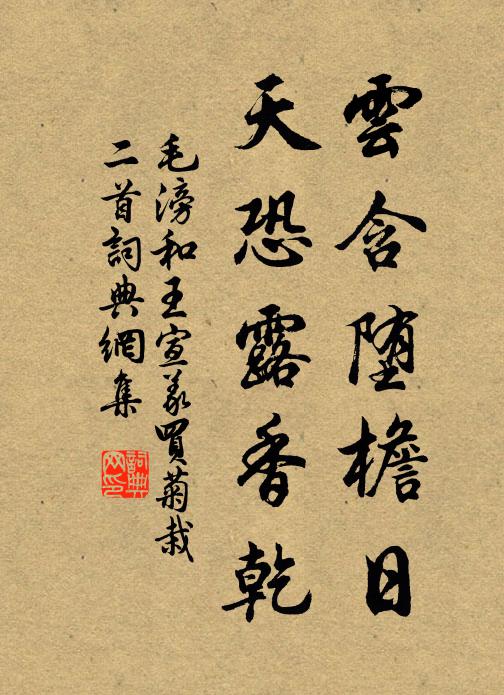 雲含堕檐日
天恐露香乾
毛滂和王宣義買菊栽
二首詞典網集
詞典
网印